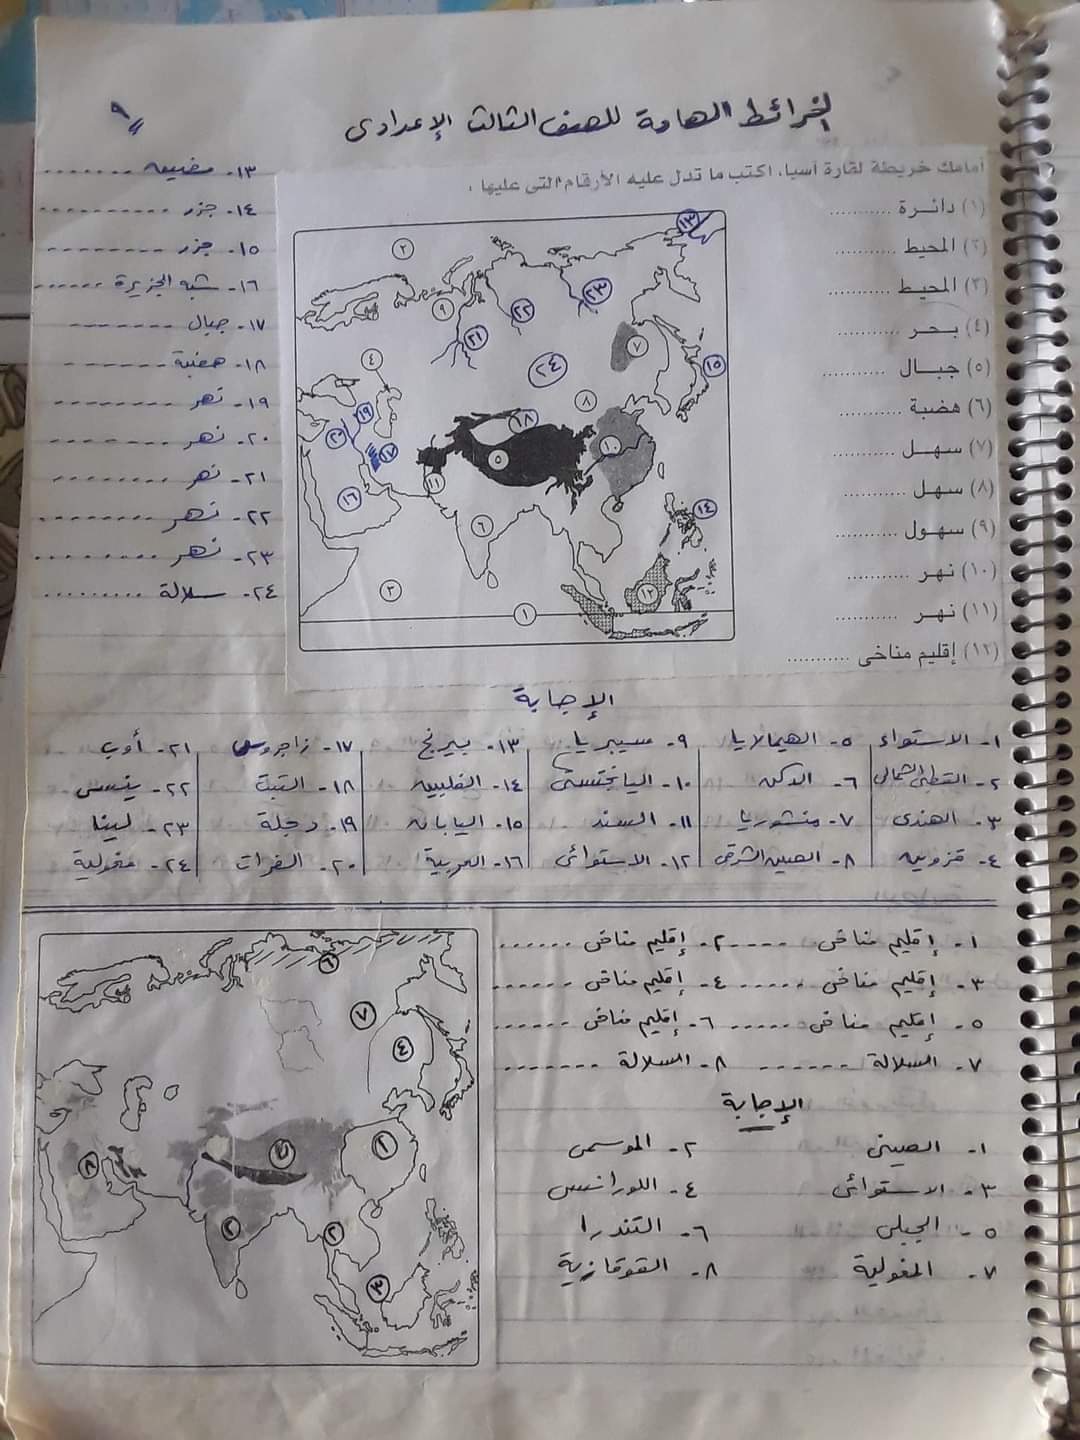 الخرائط الهامة للصف الثالث الإعدادى
٩
أمامك خريطة لقارة آسيا، اكتب ما تدل عليه الأرقام التى عليها :
(١) دائرة ...........
(٢) المحيط ...........
(٣) المحيط ...........
(٤) بحر ...........
(٥) جبال ...........
(٦) هضبة ...........
(٧) سهل ...........
(٨) سهل ...........
(٩) سهول ...........
(١٠) نهر ...........
(١١) نهر ...........
(١٢) إقليم مناخى ...........
١٣- مضيق ........
١٤- جزر ........
١٥- جزر ........
١٦- شبه الجزيرة ......
١٧- جبال ........
١٨- هضبة ........
١٩- نهر ........
٢٠- نهر ........
٢١- نهر ........
٢٢- نهر ........
٢٣- نهر ........
٢٤- سلالة ........
١٣
٢
٩ ٢٢ ٢٣
٢١ ٧
٤ ٢٤ ١٥
١٩ ١٨ ٨
٢٠ ١٧ ٥ ١٠
١٦ ١١ ٦ ١٤
٣ ١ ١٢
الإجابة
١- الاستواء ٥- الهيمالايا ٩- سيبريا ١٣- بيرنج ١٧- زاجروس ٢١- أوب
٢- القطبى الشمالى ٦- الدكن ١٠- اليانجتسى ١٤- الفلبين ١٨- التبت ٢٢- ينسى
٣- الهندى ٧- منشوريا ١١- السند ١٥- اليابان ١٩- دجلة ٢٣- لينا
٤- قزوين ٨- الصين الشرقى ١٢- الاستوائى ١٦- العربية ٢٠- الفرات ٢٤- مغولية
١- إقليم مناخى ..... ٢- إقليم مناخى ......
٣- إقليم مناخى ..... ٤- إقليم مناخى ......
٥- إقليم مناخى ..... ٦- إقليم مناخى ......
٧- السلالة ...... ٨- السلالة .......
الإجابة
١- الصينى ٢- الموسمى
٣- الاستوائى ٤- اللورانسى
٥- الجبلى ٦- التندرا
٧- المغولية ٨- القوقازية
٦
٧
٤
٨ ٥ ١
٢ ٢
٣